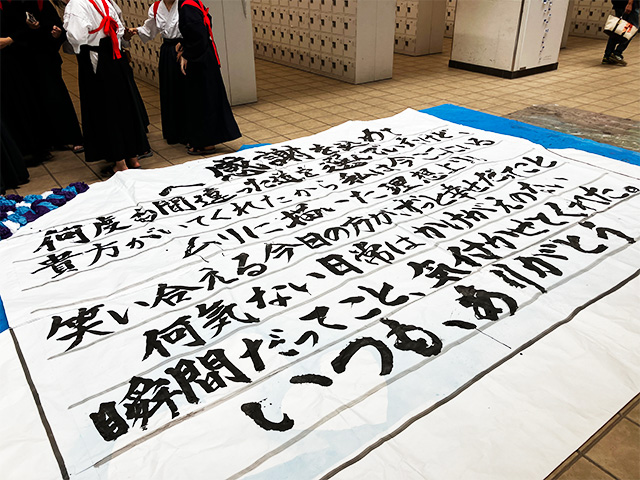 ～感謝を込めて～
何度も間違った道を選んでしまうけど、
貴方がいてくれたから私は今ここにいる
ムリに描いた理想より
笑い合える今日の方がずっと幸せだったこと
何気ない日常はかけがえのない
瞬間だってこと、気付かせてくれた。
いつも、ありがとう